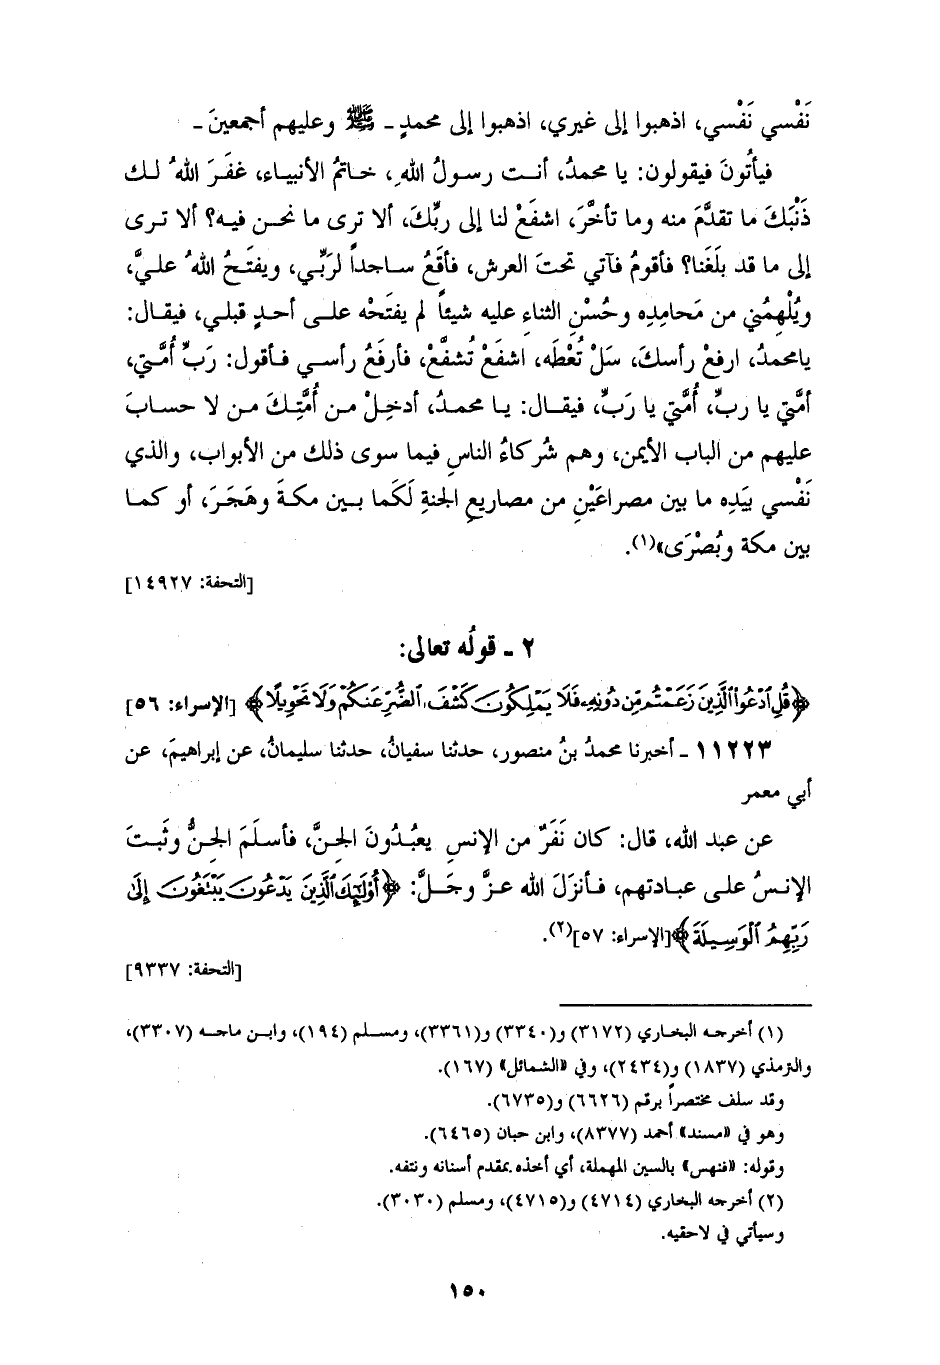 نَفْسي نَفْسي، اذهبوا إلى غيري، اذهبوا إلى محمدٍ - ﷺ وعليهم أجمعينَ -
فيأتُونَ فيقولون: يا محمدُ، أنت رسولُ اللهِ، خاتمُ الأنبياء، غفَرَ اللهُ لك
ذَنْبَكَ ما تقدَّمَ منه وما تأخَّرَ، اشفَعْ لنا إلى ربِّكَ، ألا ترى ما نحن فيه؟ ألا ترى
إلى ما قد بلَغَنا؟ فأقومُ فآتي تحتَ العرش، فأقَعُ ساجداً لرَبِّي، ويفتَحُ اللهُ عليَّ،
ويُلْهِمُني من مَحامِدِه وحُسْنِ الثناءِ عليه شيئاً لم يفتَحْه على أحدٍ قبلي، فيقال:
يامحمدُ، ارفعْ رأسكَ، سَلْ تُعْطَه، اشفَعْ تُشفَّعْ، فأرفَعُ رأسي فأقول: رَبِّ أُمَّتي،
أمَّتي يا ربِّ، أُمَّتي يا رَبِّ، فيقال: يا محمدُ، أدخِلْ من أُمَّتِكَ من لا حسابَ
عليهم من الباب الأيمن، وهم شُركاءُ الناسِ فيما سوى ذلك من الأبواب، والذي
نَفْسي بيَدِه ما بين مصراعَيْنِ من مصاريعِ الجنةِ لَكَما بين مكةَ وهَجَرَ، أو كما
بين مكة وبُصْرَى»(١).
[التحفة: ١٤٩٢٧]
٢ - قولُه تعالى:
﴿قُلِ ٱدْعُوا۟ ٱلَّذِينَ زَعَمْتُم مِّن دُونِهِۦ فَلَا يَمْلِكُونَ كَشْفَ ٱلضُّرِّ عَنكُمْ وَلَا تَحْوِيلًا﴾ [الإسراء: ٥٦]
١١٢٢٣ - أخبرنا محمدُ بنُ منصور، حدثنا سفيانُ، حدثنا سليمانُ، عن إبراهيمَ، عن
أبي معمر
عن عبد الله، قال: كان نَفَرٌ من الإنسِ يعبُدُونَ الجِنَّ، فأسلَمَ الجِنُّ وثبتَ
الإنسُ على عبادتهم، فأنزَلَ الله عزَّ وجَلَّ: ﴿أُو۟لَٰٓئِكَ ٱلَّذِينَ يَدْعُونَ يَبْتَغُونَ إِلَىٰ
رَبِّهِمُ ٱلْوَسِيلَةَ﴾[الإسراء: ٥٧](٢).
[التحفة: ٩٣٣٧]
(١) أخرجه البخاري (٣١٧٢) و(٣٣٤٠) و(٣٣٦١)، ومسلم (١٩٤)، وابن ماجه (٣٣٠٧)،
والترمذي (١٨٣٧) و(٢٤٣٤)، وفي «الشمائل» (١٦٧).
وقد سلف مختصراً برقم (٦٦٢٦) و(٦٧٣٥).
وهو في «مسند» أحمد (٨٣٧٧)، وابن حبان (٦٤٦٥).
وقوله: «فنهس» بالسين المهملة، أي أخذه بمقدم أسنانه ونتفه.
(٢) أخرجه البخاري (٤٧١٤) و(٤٧١٥)، ومسلم (٣٠٣٠).
وسيأتي في لاحقيه.
١٥٠